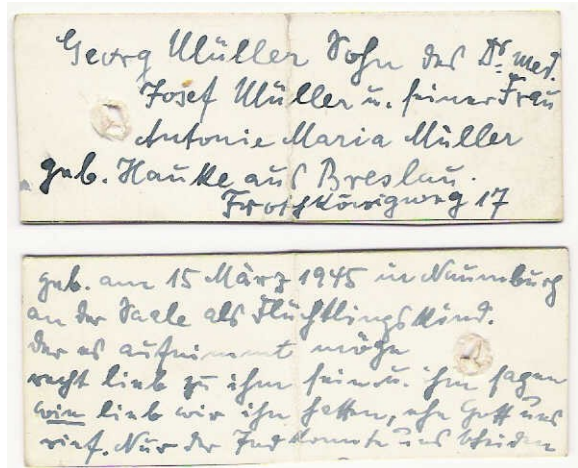 Georg Müller Sohn des Dr. med.
Josef Müller u. seiner Frau
Antonie Maria Müller
geb. Hauke aus Breslau.
Froschkönigweg 17
geb. am 15 März 1945 in Naumburg
an der Saale als Flüchtlingskind.
Der es aufnimmt möge
recht lieb zu ihm sein u. ihm sagen
wie lieb wir ihn hatten, ehe Gott uns
rief. Nur der Tod konnte uns scheiden